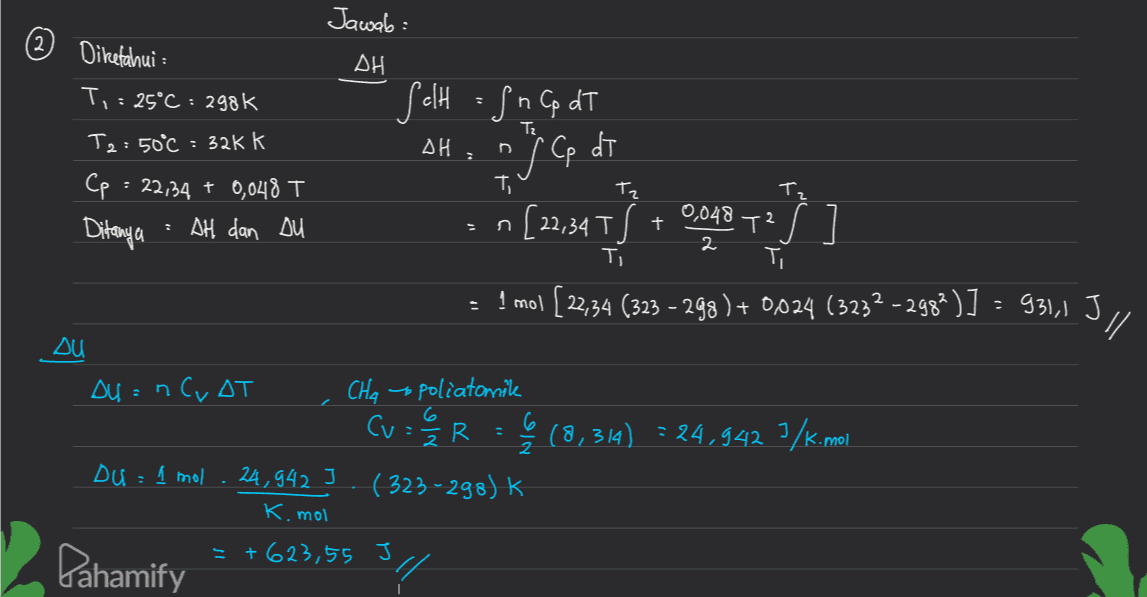 Jawab :
2 Diketahui :
ΔH
T₁ = 25°C = 298K
∫dH = ∫n Cp dT
T₂ = 50°C = 32K K
ΔH = n T₁∫T₂ Cp dT
Cp = 22,34 + 0,048 T
Ditanya = ΔH dan ΔU
= n [22,34 T T₁∫T₂ + 0,048/2 T² T₁∫T₂ ]
= 1 mol [22,34 (323 - 298) + 0,024 (323² - 298²)] = 931,1 J //
ΔU
ΔU = n Cv ΔT , CH4 → poliatomik
Cv = 6/2 R = 6/2 (8,314) = 24,942 J/K.mol
ΔU = 1 mol . 24,942 J/K.mol . (323-298) K
= + 623,55 J //
Pahamify